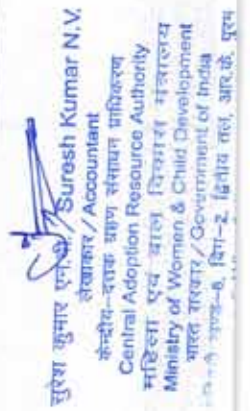 सुरेश कुमार एन.वी./Suresh Kumar N.V.
लेखाकार/Accountant
केन्द्रीय-दत्तक ग्रहण संसाधन प्राधिकरण
Central Adoption Resource Authority
महिला एवं बाल विकास मंत्रालय
Ministry of Women & Child Development
भारत सरकार/Government of India
खण्ड-8, विंग-2, द्वितीय तल, आर.के. पुरम